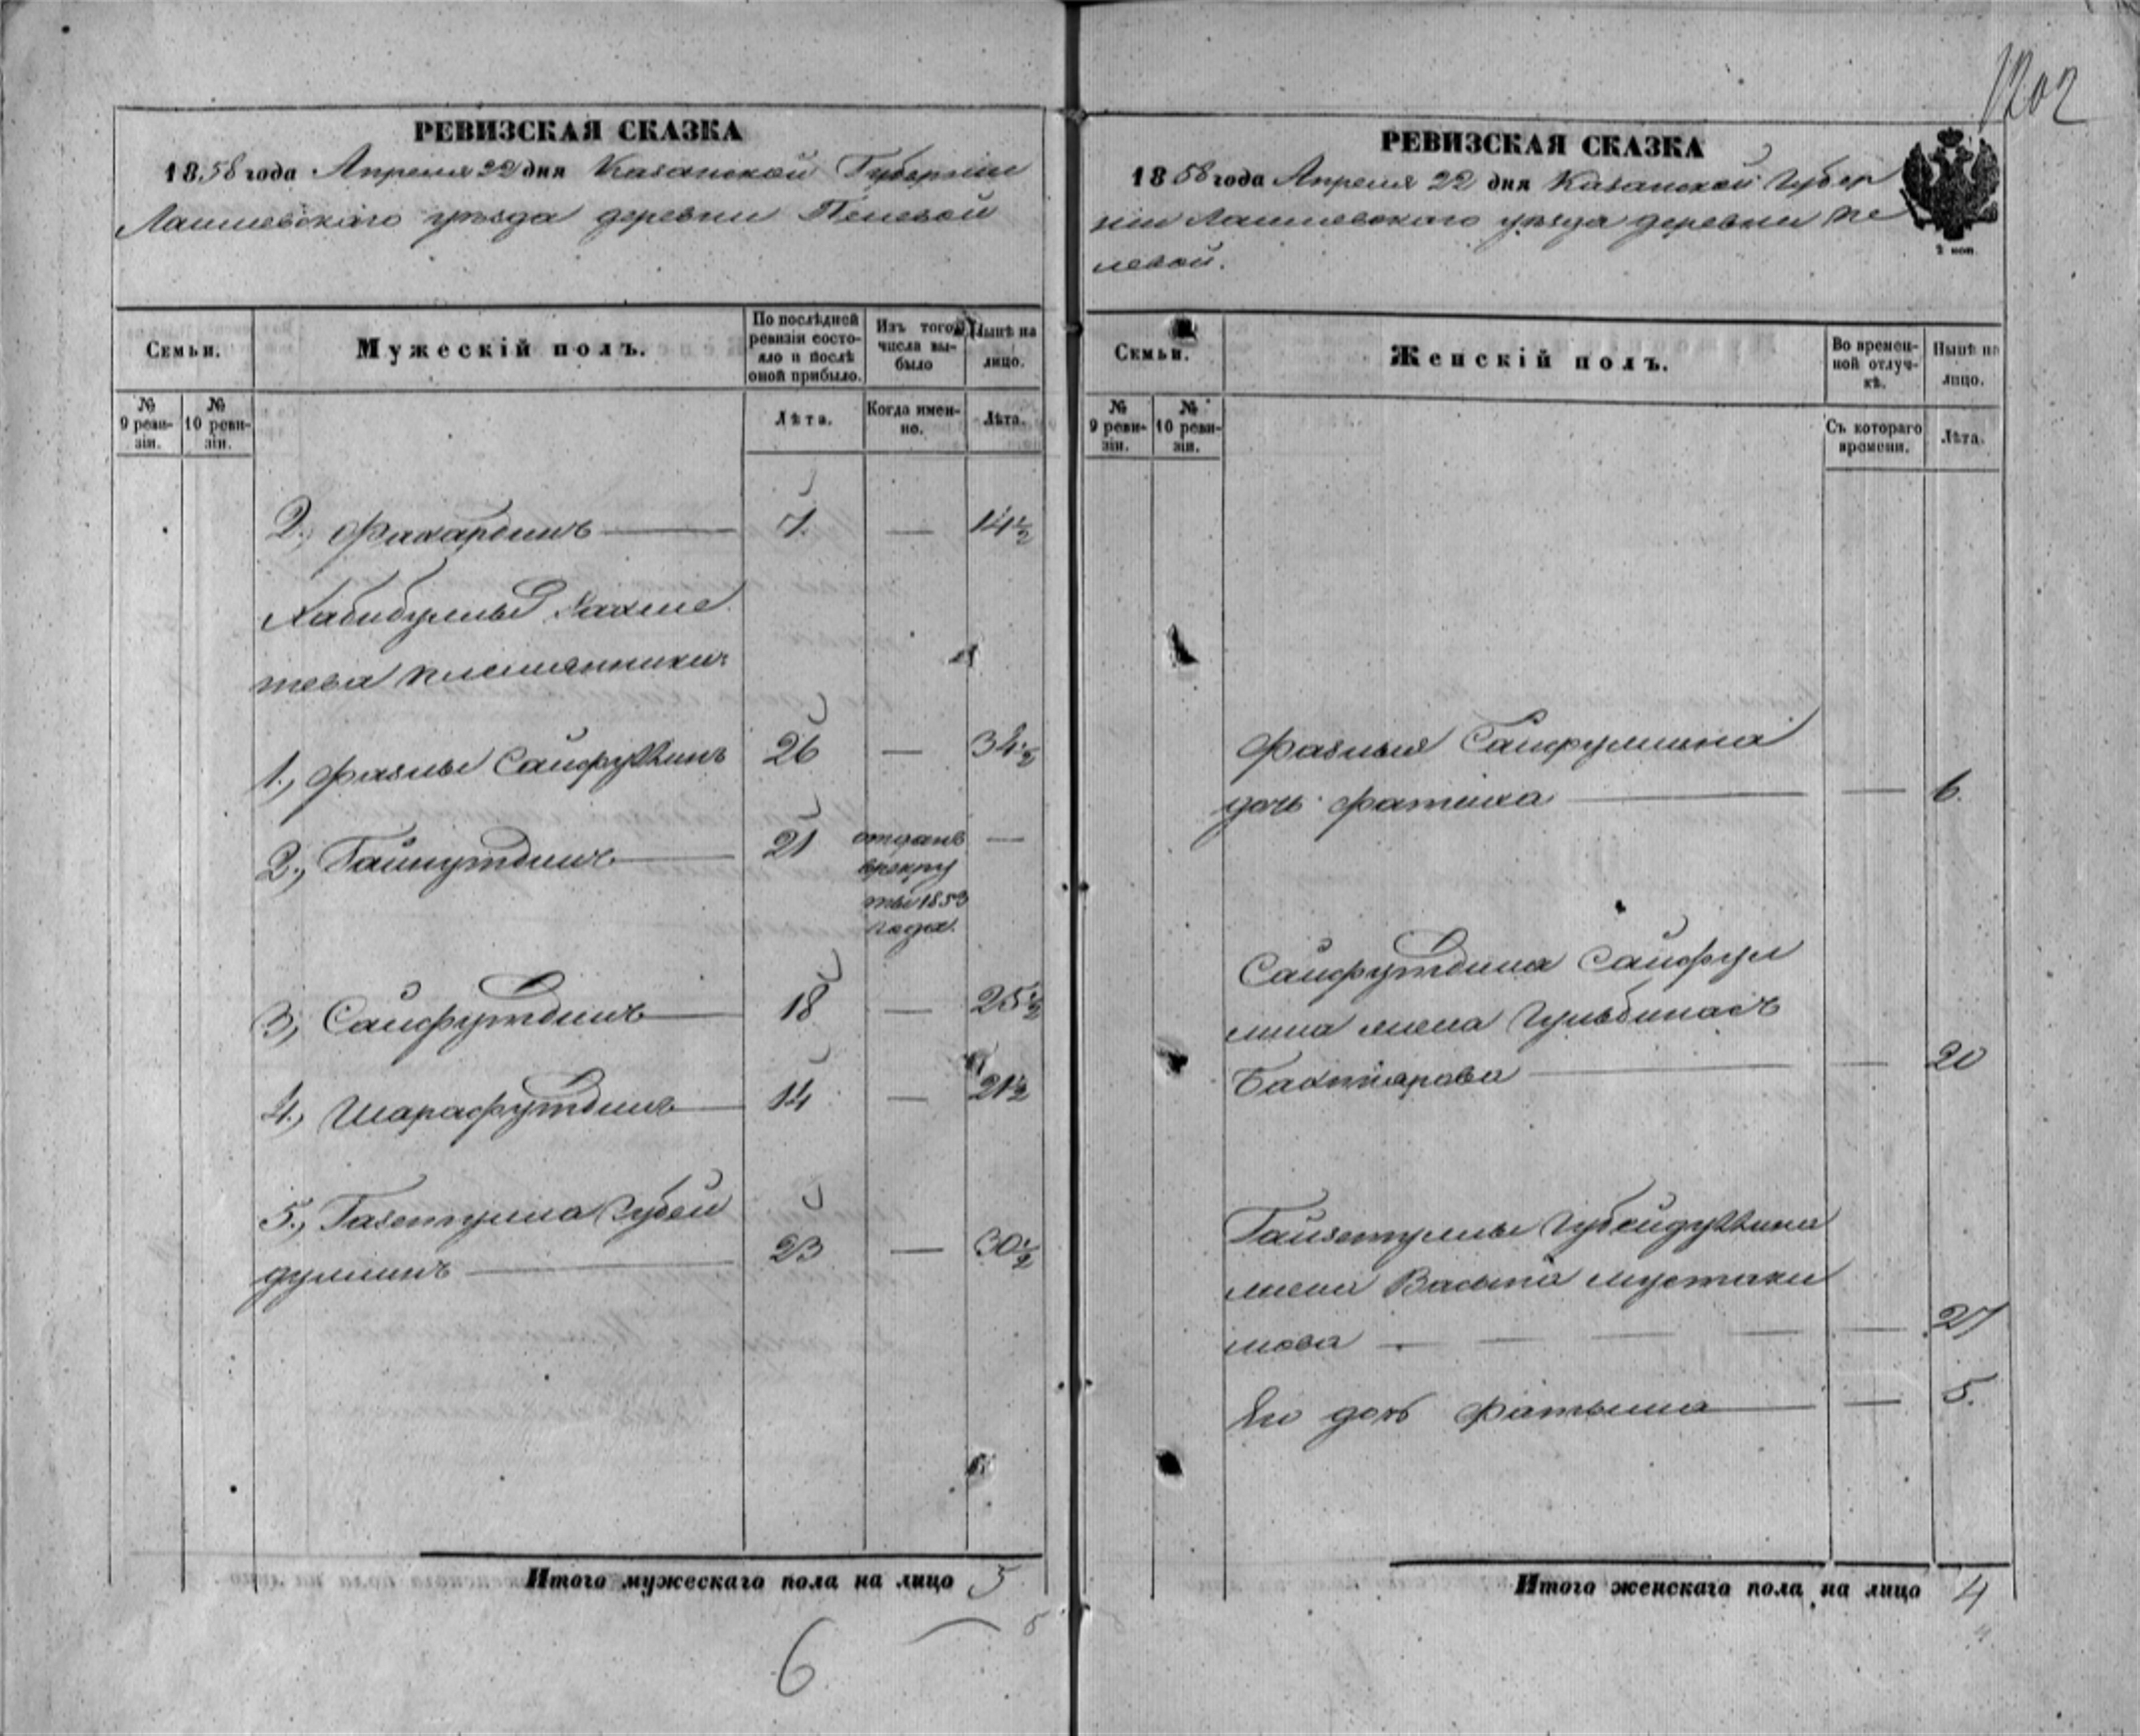 1202
РЕВИЗСКАЯ СКАЗКА
1858 года Апреля 22 дня Казанской Губерніи
Лаишевскаго уѣзда деревни Пелевой
Семьи.
Мужескій полъ.
По послѣдней ревизіи состояло и послѣ оной прибыло.
Изъ того числа выбыло
Нынѣ на лицо.
№ 9 ревизіи.
№ 10 ревизіи.
Лѣта.
Когда именно.
Лѣта.
2., Фахардинъ — 7. — 14½
Хабибуллы
тева племянники
1., Фазлы Сайфуллинъ 26 — 34½
2., Гайнутдинъ — 21 отданъ —
врекру
ты 1853
года.
3., Сайфутдинъ — 18 — 25½
4., Шарафутдинъ — 14 — 21½
5., Газетулла Губей
дуллинъ — 23 — 30½
Итого мужескаго пола на лицо 5
6
5
РЕВИЗСКАЯ СКАЗКА
1858 года Апреля 22 дня Казанской Губер
ніи Лаишевскаго уѣзда деревни Пе
левой.
2 коп.
Семьи.
Женскій полъ.
Во временной отлучкѣ.
Нынѣ на лицо.
№ 9 ревизіи.
№ 10 ревизіи.
Съ котораго времени.
Лѣта.
Фазлыя Сайфуллина
дочь Фатиха — — 6.
Сайфутдина Сайфул
лина жена Гульбинасъ
Бахтіарова — — 20
Гайзетуллы Губейдуллина
жена Васыпа Мустаки
мова — — 27
Его дочь Фатыма — — 5.
Итого женскаго пола на лицо 4
4